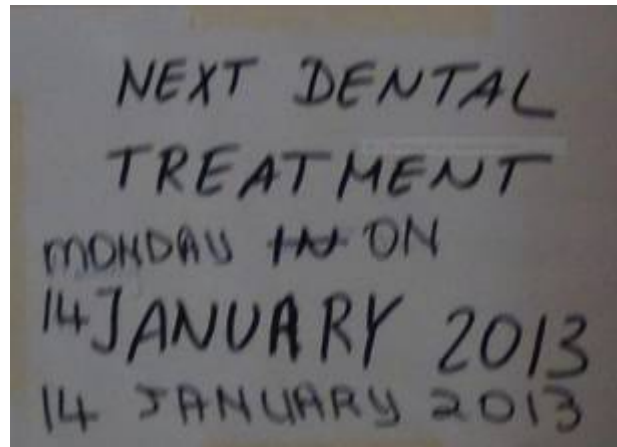 NEXT DENTAL
TREATMENT
MONDAY IN ON
14 JANUARY 2013
14 JANUARY 2013